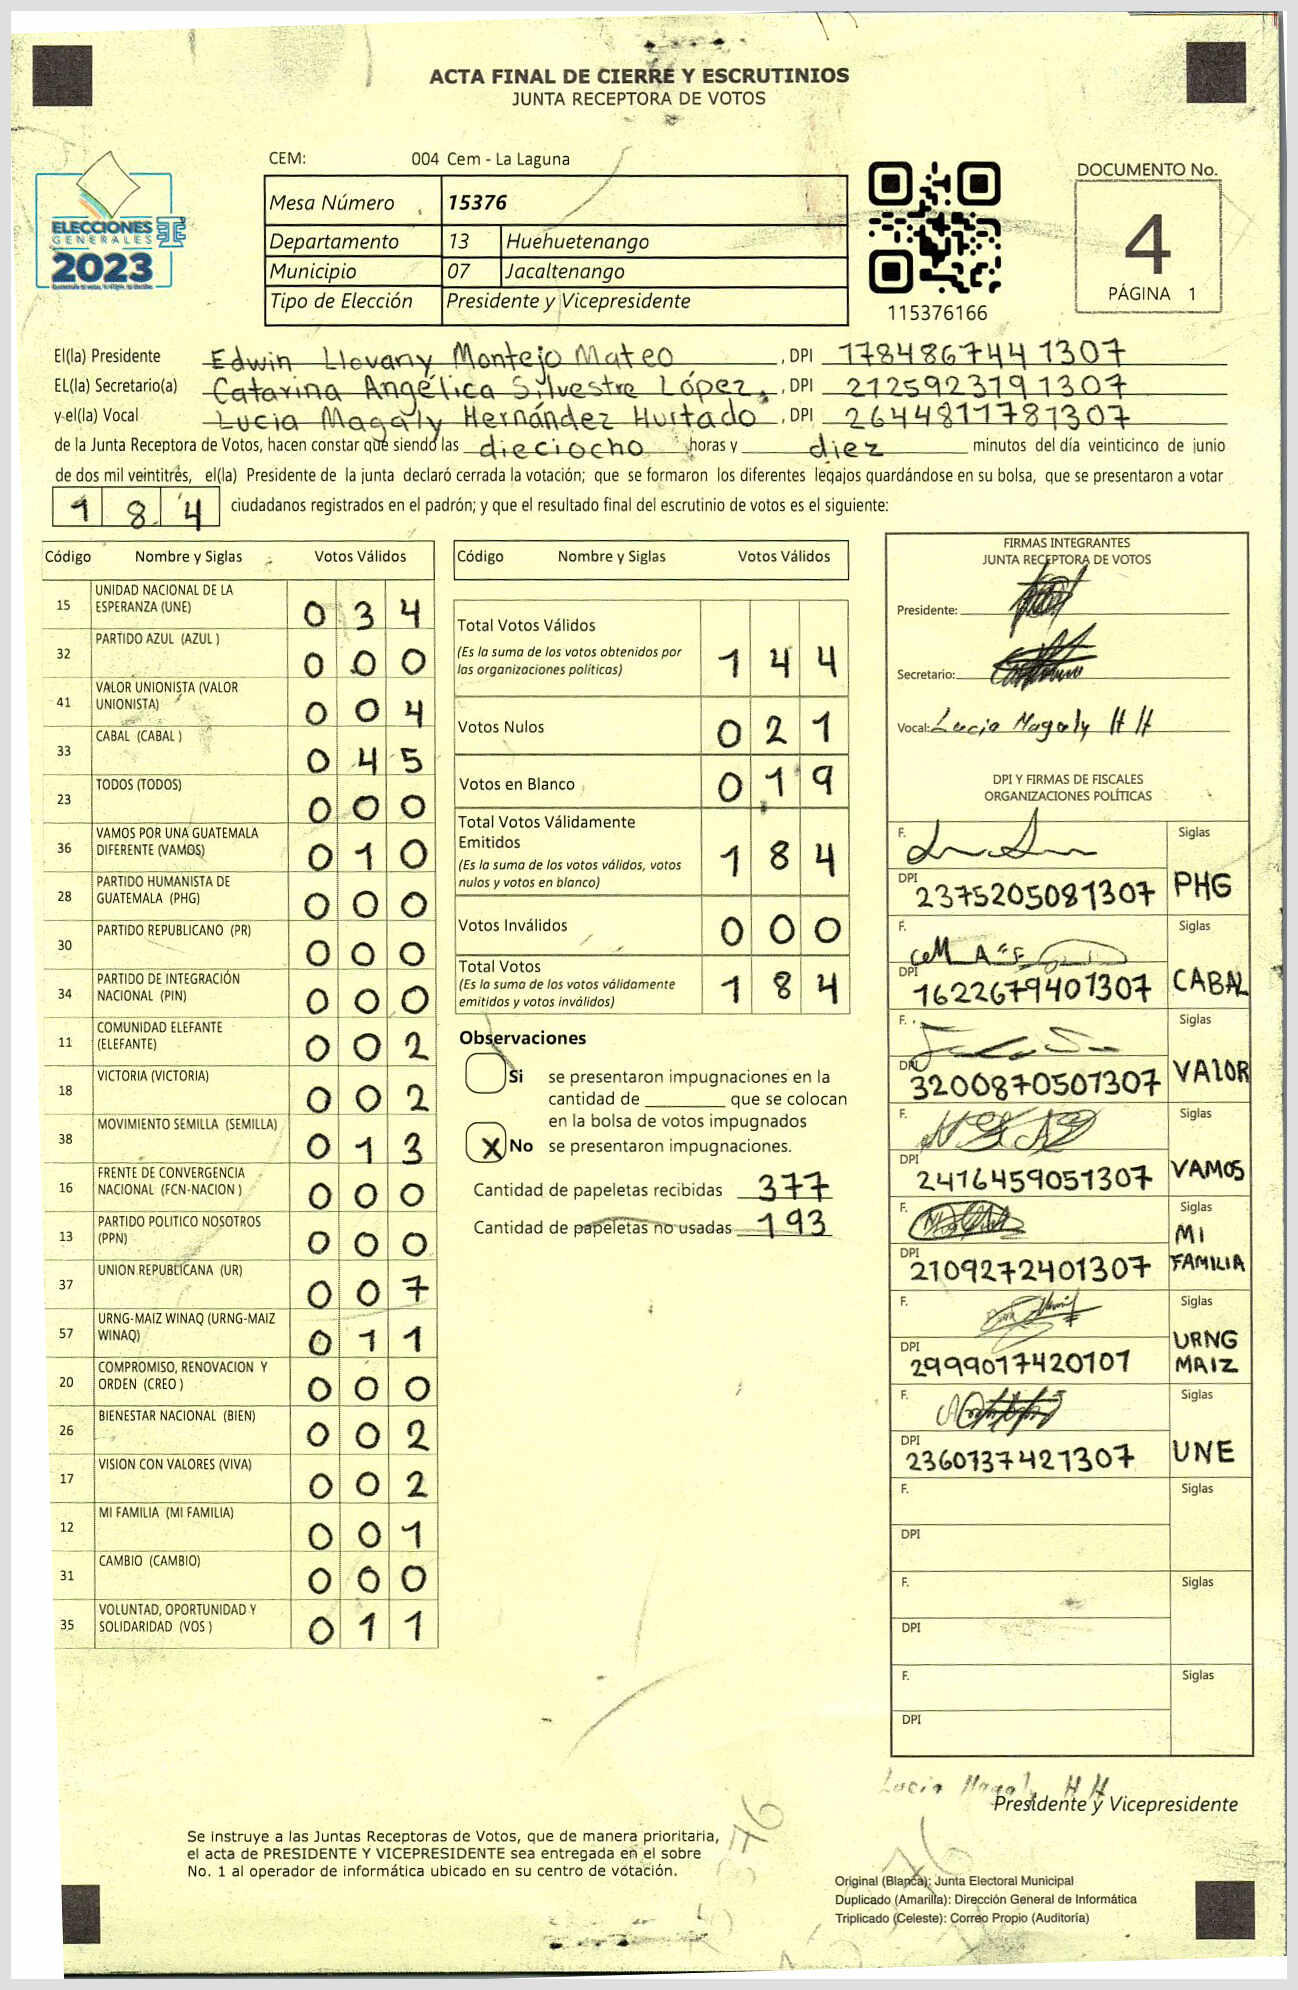 ACTA FINAL DE CIERRE Y ESCRUTINIOS
JUNTA RECEPTORA DE VOTOS
CEM: 004 Cem - La Laguna
Mesa Número 15376
Departamento 13 Huehuetenango
Municipio 07 Jacaltenango
Tipo de Elección Presidente y Vicepresidente
ELECCIONES
GENERALES
2023
115376166
DOCUMENTO No.
4
PÁGINA 1
El(la) Presidente Edwin Llovany Montejo Mateo , DPI 1784867441307
EL(la) Secretario(a) Catarina Angélica Silvestre López, , DPI 2125923191307
y el(la) Vocal Lucia Magaly Hernández Hurtado , DPI 2644811781307
de la Junta Receptora de Votos, hacen constar que siendo las dieciocho horas y diez minutos del día veinticinco de junio
de dos mil veintitrés, el(la) Presidente de la junta declaró cerrada la votación; que se formaron los diferentes legajos quardándose en su bolsa, que se presentaron a votar
184 ciudadanos registrados en el padrón; y que el resultado final del escrutinio de votos es el siguiente:
Código Nombre y Siglas Votos Válidos
15 UNIDAD NACIONAL DE LA ESPERANZA (UNE) 034
32 PARTIDO AZUL (AZUL ) 000
41 VALOR UNIONISTA (VALOR UNIONISTA) 004
33 CABAL (CABAL ) 045
23 TODOS (TODOS) 000
36 VAMOS POR UNA GUATEMALA DIFERENTE (VAMOS) 010
28 PARTIDO HUMANISTA DE GUATEMALA (PHG) 000
30 PARTIDO REPUBLICANO (PR) 000
34 PARTIDO DE INTEGRACIÓN NACIONAL (PIN) 000
11 COMUNIDAD ELEFANTE (ELEFANTE) 002
18 VICTORIA (VICTORIA) 002
38 MOVIMIENTO SEMILLA (SEMILLA) 013
16 FRENTE DE CONVERGENCIA NACIONAL (FCN-NACION ) 000
13 PARTIDO POLITICO NOSOTROS (PPN) 000
37 UNION REPUBLICANA (UR) 007
57 URNG-MAIZ WINAQ (URNG-MAIZ WINAQ) 011
20 COMPROMISO, RENOVACION Y ORDEN (CREO ) 000
26 BIENESTAR NACIONAL (BIEN) 002
17 VISION CON VALORES (VIVA) 002
12 MI FAMILIA (MI FAMILIA) 001
31 CAMBIO (CAMBIO) 000
35 VOLUNTAD, OPORTUNIDAD Y SOLIDARIDAD (VOS ) 011
Código Nombre y Siglas Votos Válidos
Total Votos Válidos 144
(Es la suma de los votos obtenidos por
las organizaciones políticas)
Votos Nulos 021
Votos en Blanco 019
Total Votos Válidamente
Emitidos 184
(Es la suma de los votos válidos, votos
nulos y votos en blanco)
Votos Inválidos 000
Total Votos 184
(Es la suma de los votos válidamente
emitidos y votos inválidos)
Observaciones
Si se presentaron impugnaciones en la
cantidad de ________ que se colocan
en la bolsa de votos impugnados
X No se presentaron impugnaciones.
Cantidad de papeletas recibidas 377
Cantidad de papeletas no usadas 193
FIRMAS INTEGRANTES
JUNTA RECEPTORA DE VOTOS
Presidente:
Secretario:
Vocal: Lucia Magaly H H
DPI Y FIRMAS DE FISCALES
ORGANIZACIONES POLÍTICAS
F. Siglas
DPI 2375205081307 PHG
F. Siglas
DPI 1622679401307 CABAL
F. Siglas
DPI 3200870501307 VALOR
F. Siglas
DPI 2416459051307 VAMOS
F. Siglas
DPI 2109272401307 MI FAMILIA
F. Siglas
DPI 2999017420101 URNG MAIZ
F. Siglas
DPI 2360137421307 UNE
F. Siglas
DPI
F. Siglas
DPI
F. Siglas
DPI
Lucia Magaly H H
Presidente y Vicepresidente
Se instruye a las Juntas Receptoras de Votos, que de manera prioritaria,
el acta de PRESIDENTE Y VICEPRESIDENTE sea entregada en el sobre
No. 1 al operador de informática ubicado en su centro de votación.
Original (Blanca): Junta Electoral Municipal
Duplicado (Amarilla): Dirección General de Informática
Triplicado (Celeste): Correo Propio (Auditoría)